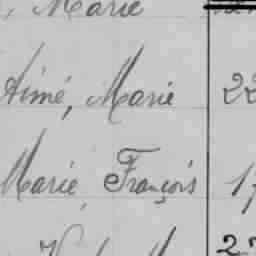 , Marie
Aimé, Marie 22
Marie, François 17
27